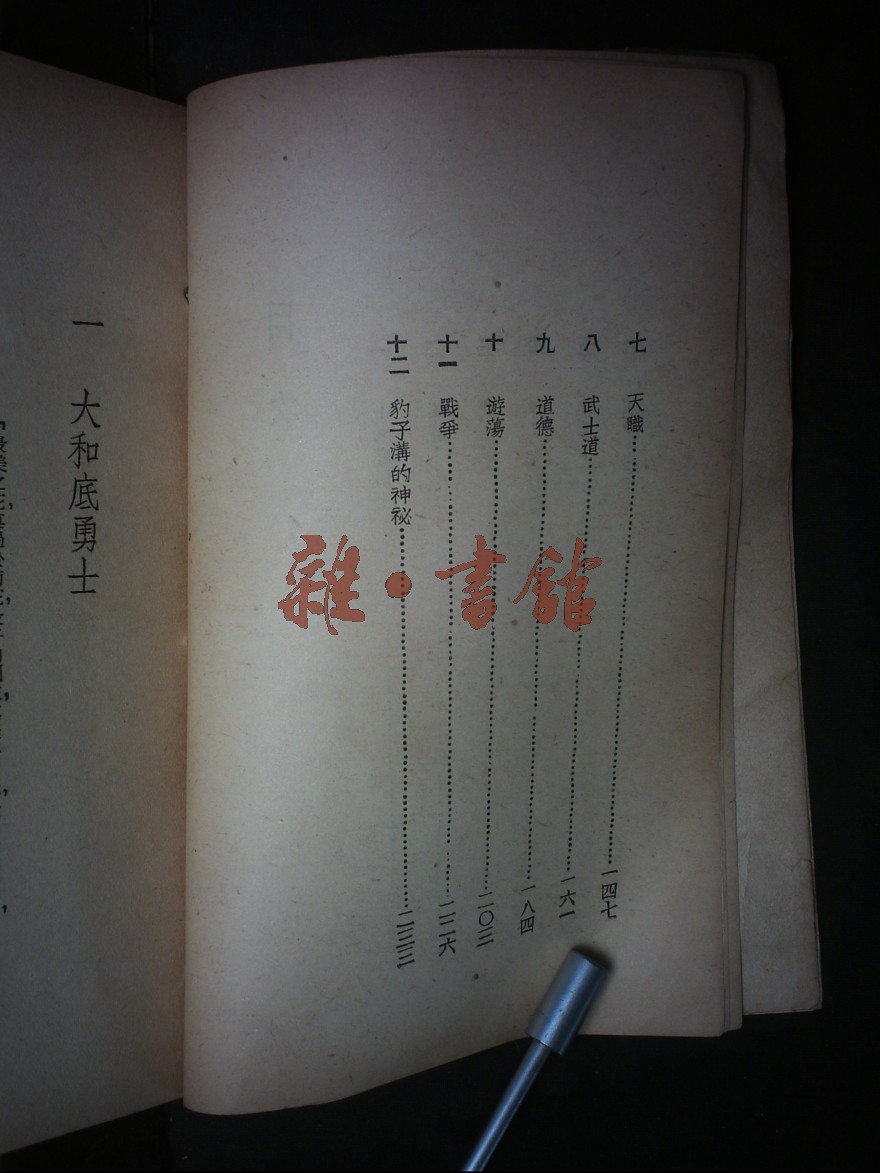 七　天職……一四七
八　武士道……一六一
九　道德……一八四
十　遊蕩……二〇三
十一　戰爭……二二六
十二　豹子溝的神祕……二三三
雜·書館
一　大和底勇士